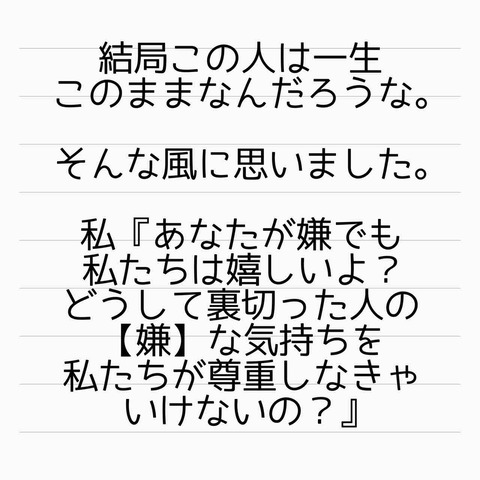 結局この人は一生
このままなんだろうな。
そんな風に思いました。
私『あなたが嫌でも
私たちは嬉しいよ？
どうして裏切った人の
【嫌】な気持ちを
私たちが尊重しなきゃ
いけないの？』